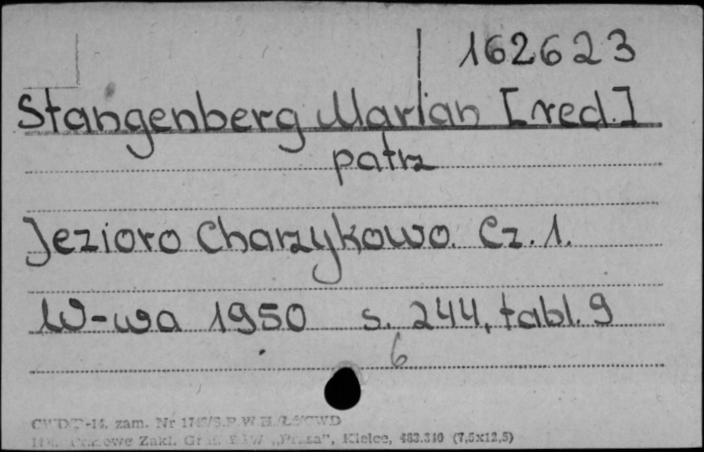 162623
Stangenberg Marian [red.]
patrz
Jezioro Charzykowo. Cz. 1.
W-wa 1950 s. 244, tabl. 9
6
-14. zam. Nr
Zakl. "Prasa", Kielce, 483.310 (7,5x12,5)